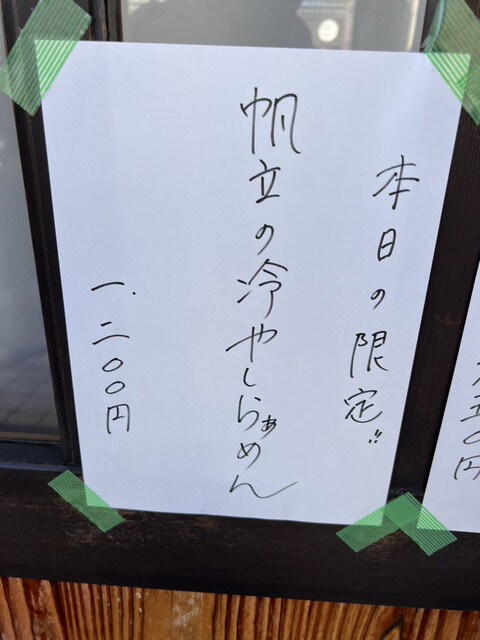 本日の限定!!
帆立の冷やしらぁめん
一.二〇〇円
五〇円